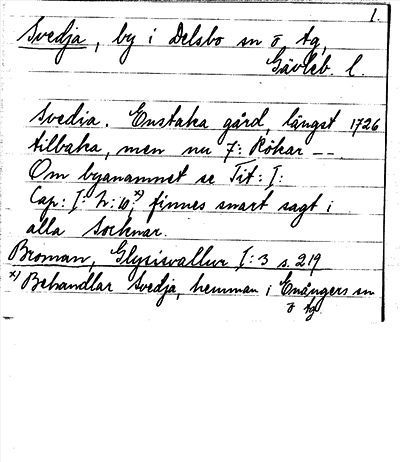 1.
Svedja, by i Delsbo sn ö tg,
Gävleb. l.
Svedia. Enstaka gård, längst 1726
tilbaka, men nu 7: Rökar --
Om byanamnet se Tit: I:
Cap: I: h: 10, x) finnes snart sagt i
alla Socknar.
Broman, Glysisvallur I:3 s. 219
x) Behandlar Svedja, hemman i Enångers sn
ö tg.